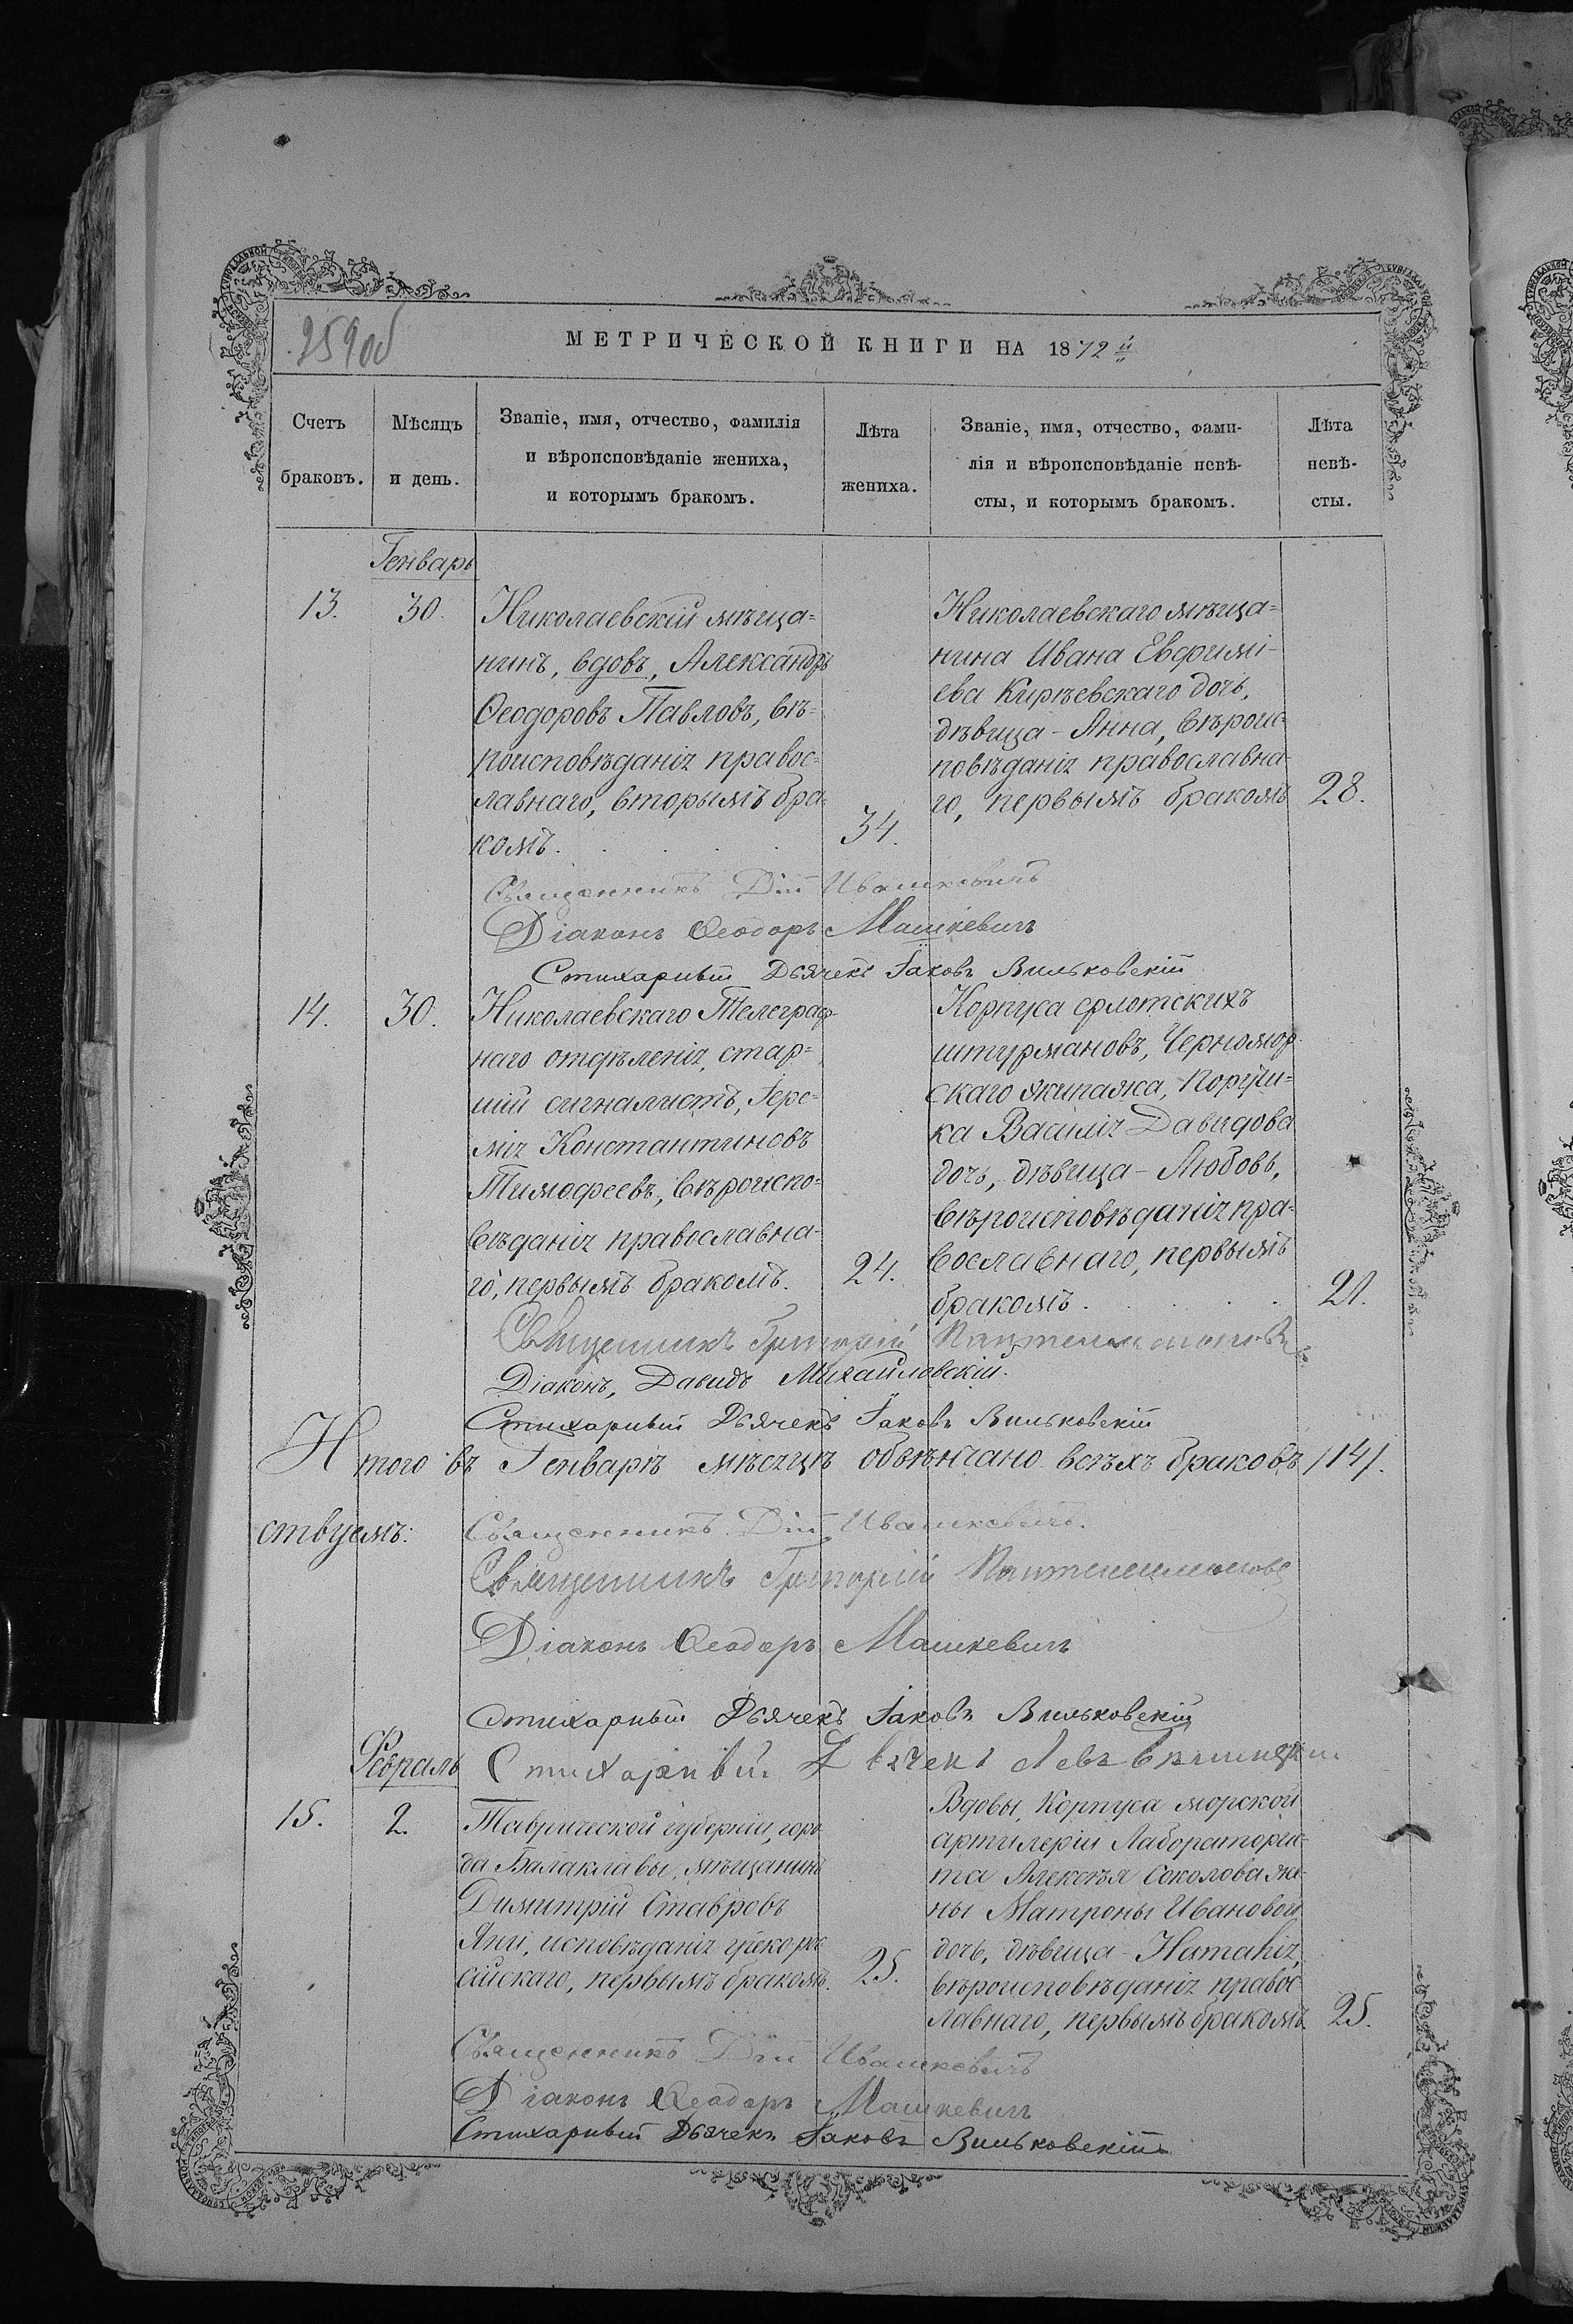 259об
МЕТРИЧЕСКОЙ КНИГИ НА 1872й
Счетъ
браковъ.
Мѣсяцъ
и день.
Званіе, имя, отчество, фамилія
и вѣроисповѣданіе жениха,
и которымъ бракомъ.
Лѣта
жениха.
Званіе, имя, отчество, фами-
лія и вѣроисповѣданіе невѣ-
сты, и которымъ бракомъ.
Лѣта
невѣ-
сты.
Генварь
13.
30.
Николаевскій мѣща=
нинъ, вдовъ, Александръ
Ѳеодоровъ Павловъ, вѣ=
роисповѣданія правос=
лавнаго, вторымъ бра-
комъ.
34.
Николаевскаго мѣща=
нина Ивана Евфимі-
ева Кирѣевскаго дочь,
дѣвица - Анна, вѣроис-
повѣданія православна-
го, первымъ бракомъ
28.
Священникъ Дій Ивашкевичъ
Діаконъ Ѳеодоръ Машкевичъ
Стихарный Дьячекъ Іаковъ Вильковскій
14.
30.
Николаевскаго Телеграф-
наго отдѣленія, стар=
шій сигналистъ, Іере=
мія Константиновъ
Тимофеевъ, вѣроиспо=
вѣданія православна-
го, первымъ бракомъ.
24.
Корпуса флотскихъ
штурмановъ, Черномор-
скаго экипажа, Поручи=
ка Василія Давидова
дочь, дѣвица - Любовь,
вѣроисповѣданія пра-
вославнаго, первымъ
бракомъ.
21.
Священникъ Григорій Пантелеимоновъ
Діаконъ, Давидъ Михайловскій.
Стихарный Дьячекъ Іаковъ Вильковскій
Итого въ Генварѣ мѣсяцѣ обвѣнчано всѣхъ браковъ /14/.
ствуемъ:
Священникъ Дій Ивашкевичъ.
Священникъ Григорій Пантелеимоновъ
Діаконъ Ѳеодоръ Машкевичъ
Стихарный Дьячекъ Іаковъ Вильковскій
Стихарный Дьячекъ Левъ
Февраль
15.
2.
Таврической губерніи, горо-
да Балаклавы, мѣщанинъ
Димитрій Ставровъ
Яни, исповѣданія грекорос-
сійскаго, первымъ бракомъ.
25.
Вдовы, Корпуса морской
артилеріи Лабораторис-
та Алексѣя Соколова же-
ны Матроны Ивановой
дочь, дѣвица - Наталія,
вѣроисповѣданія правос-
лавнаго, первымъ бракомъ.
25.
Священникъ Дій Ивашкевичъ
Діаконъ Ѳеодоръ Машкевичъ
Стихарный Дьячекъ Іаковъ Вильковскій